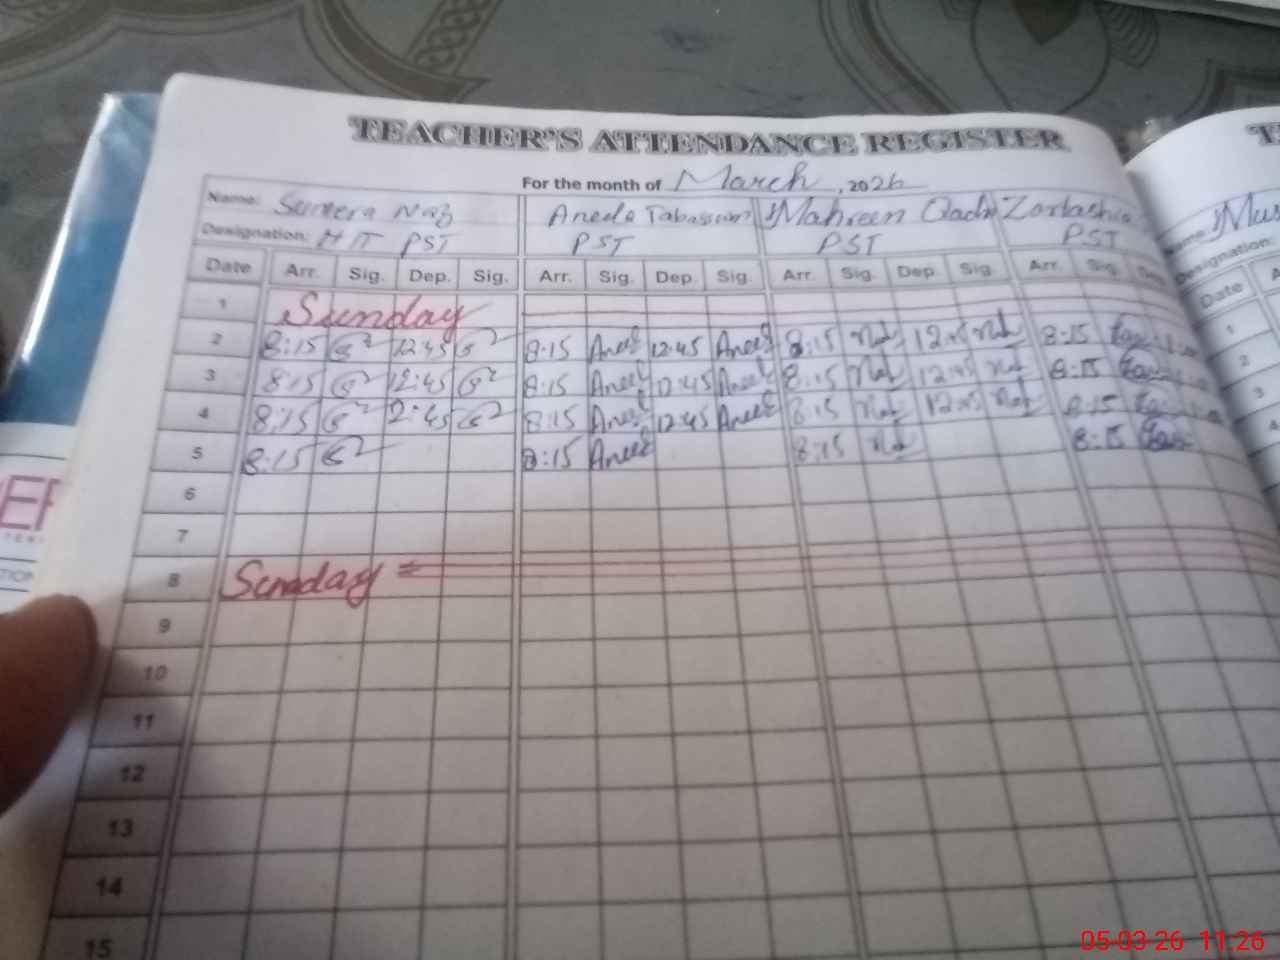 TEACHER'S ATTENDANCE REGISTER
For the month of March, 2026
Name: Sumera Naz Aneela Tabassum Mahreen Qadir Zartashia
Designation: HT PST PST PST PST
Date Arr. Sig. Dep. Sig. Arr. Sig. Dep. Sig. Arr. Sig. Dep. Sig. Arr. Sig. Dep.
1 Sunday
2 8:15 12:45 8:15 Aneel 12:45 Aneel 8:15 12:45 8:15
3 8:15 12:45 8:15 Aneel 12:45 Aneel 8:15 12:45 8:15
4 8:15 2:45 8:15 Aneel 12:45 Aneel 8:15 12:45 8:15
5 8:15 8:15 Aneel 8:15 8:15
6
7
8 Sunday =
9
10
11
12
13
14
15
Name: Mus
Designation:
Date
1
2
3
4
ER
TION
05-03-26 11:26